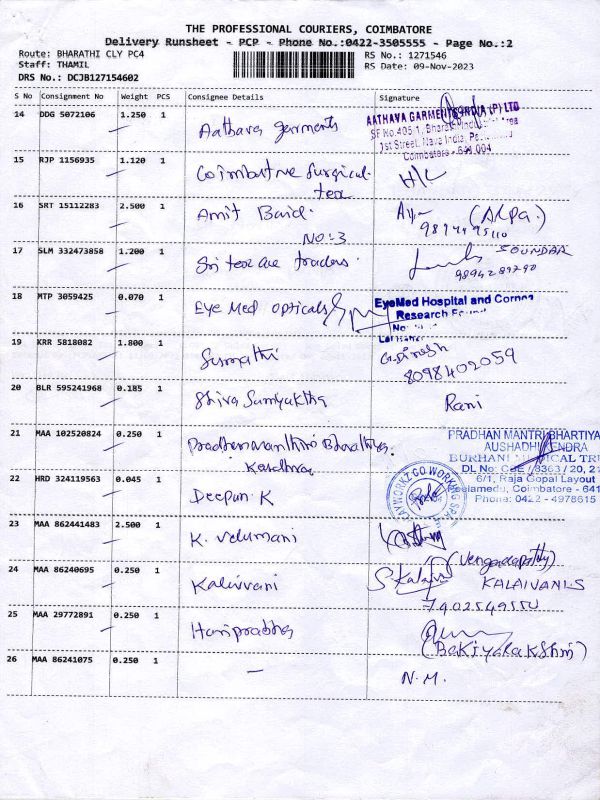 THE PROFESSIONAL COURIERS, COIMBATORE
Delivery Runsheet - PCP - Phone No.:0422-3505555 - Page No.:2
Route: BHARATHI CLY PC4 RS No.: 1271546
Staff: THAMIL RS Date: 09-Nov-2023
DRS No.: DCJB127154602
S No Consignment No Weight PCS Consignee Details Signature
14 DDG 5072106 1.250 1 Aathava garments
AATHAVA GARMENTS INDIA (P) LTD
SF No.405/1, Bharathi Industrial Area
1st Street, Nava India,
Coimbatore - 641 004
15 RJP 1156935 1.120 1 Coimbatore Surgical tex H/L
16 SRT 15112283 2.500 1 Amit Baid. (Alpa.)
NO:3 9894495110
17 SLM 332473858 1.200 1 Sri tex ace traders SOUNDAR
9894289790
18 MTP 3059425 0.070 1 Eye Med opticals
EyeMed Hospital and Cornea
Research
19 KRR 5818082 1.800 1 Sumathi G.Dinesh
8098402059
20 BLR 595241968 0.185 1 Shiva Samyuktha Rani
21 MAA 102520824 0.250 1 Pradhanmanthiri Bharathiya
Kendhra
PRADHAN MANTRI BHARTIYA
AUSHADHI KENDRA
BURHANI MEDICAL TRU
DL No: CBE / 8363 / 20, 21
6/1, Raja Gopal Layout
Peelamedu, Coimbatore - 641
Phone: 0422 - 4978615
22 HRD 324119563 0.045 1 Deepan K
WORKZ CO WORKING SPACE
23 MAA 862441483 2.500 1 K. Velumani
(Vengadapathy)
24 MAA 86240695 0.250 1 Kalaivani S.Kalai KALAIVANI.S
7402549554
25 MAA 29772891 0.250 1 Hariprabha
(Bakiyalakshmi)
26 MAA 86241075 0.250 1 — N.M.